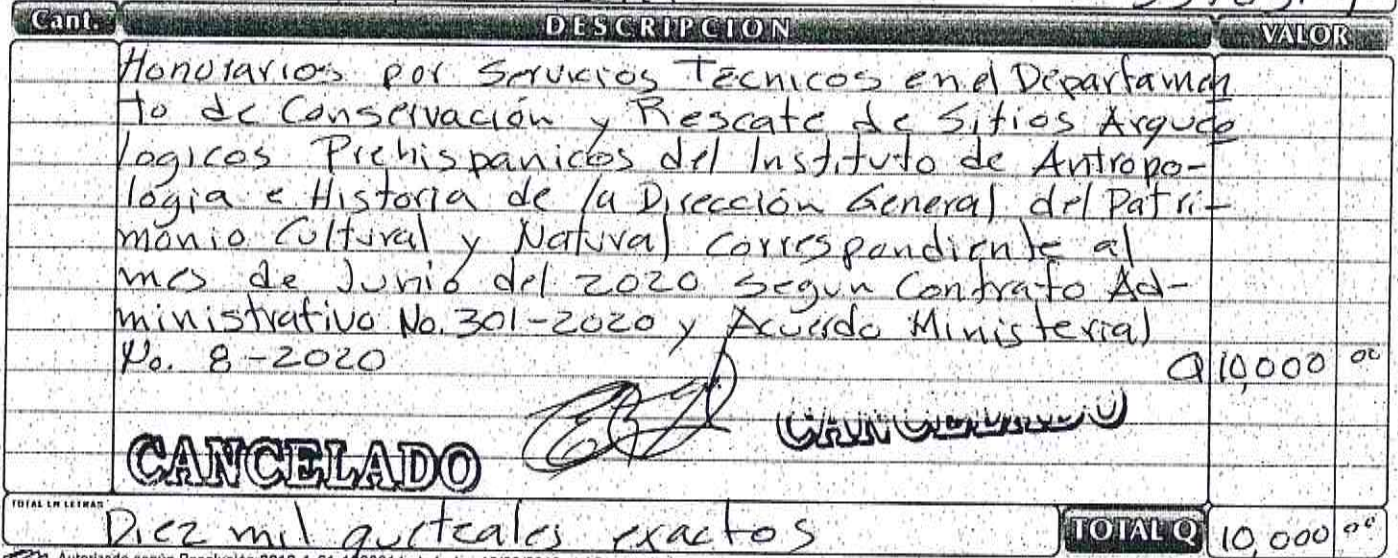 Cant. DESCRIPCION VALOR
Honorarios por Servicios Técnicos en el Departamen
to de Conservación y Rescate de Sitios Arqueo
logicos Prehispanicos del Instituto de Antropo-
logia e Historia de la Dirección General del Patri-
monio Cultural y Natural correspondiente al
mes de Junio del 2020 Segun Contrato Ad-
ministrativo No. 301-2020 y Acuerdo Ministerial
No. 8-2020 Q 10,000 00
CANCELADO CANCELADO
TOTAL EN LETRAS
Diez mil quetzales exactos TOTAL Q 10,000 00
Autorizado según Resolución